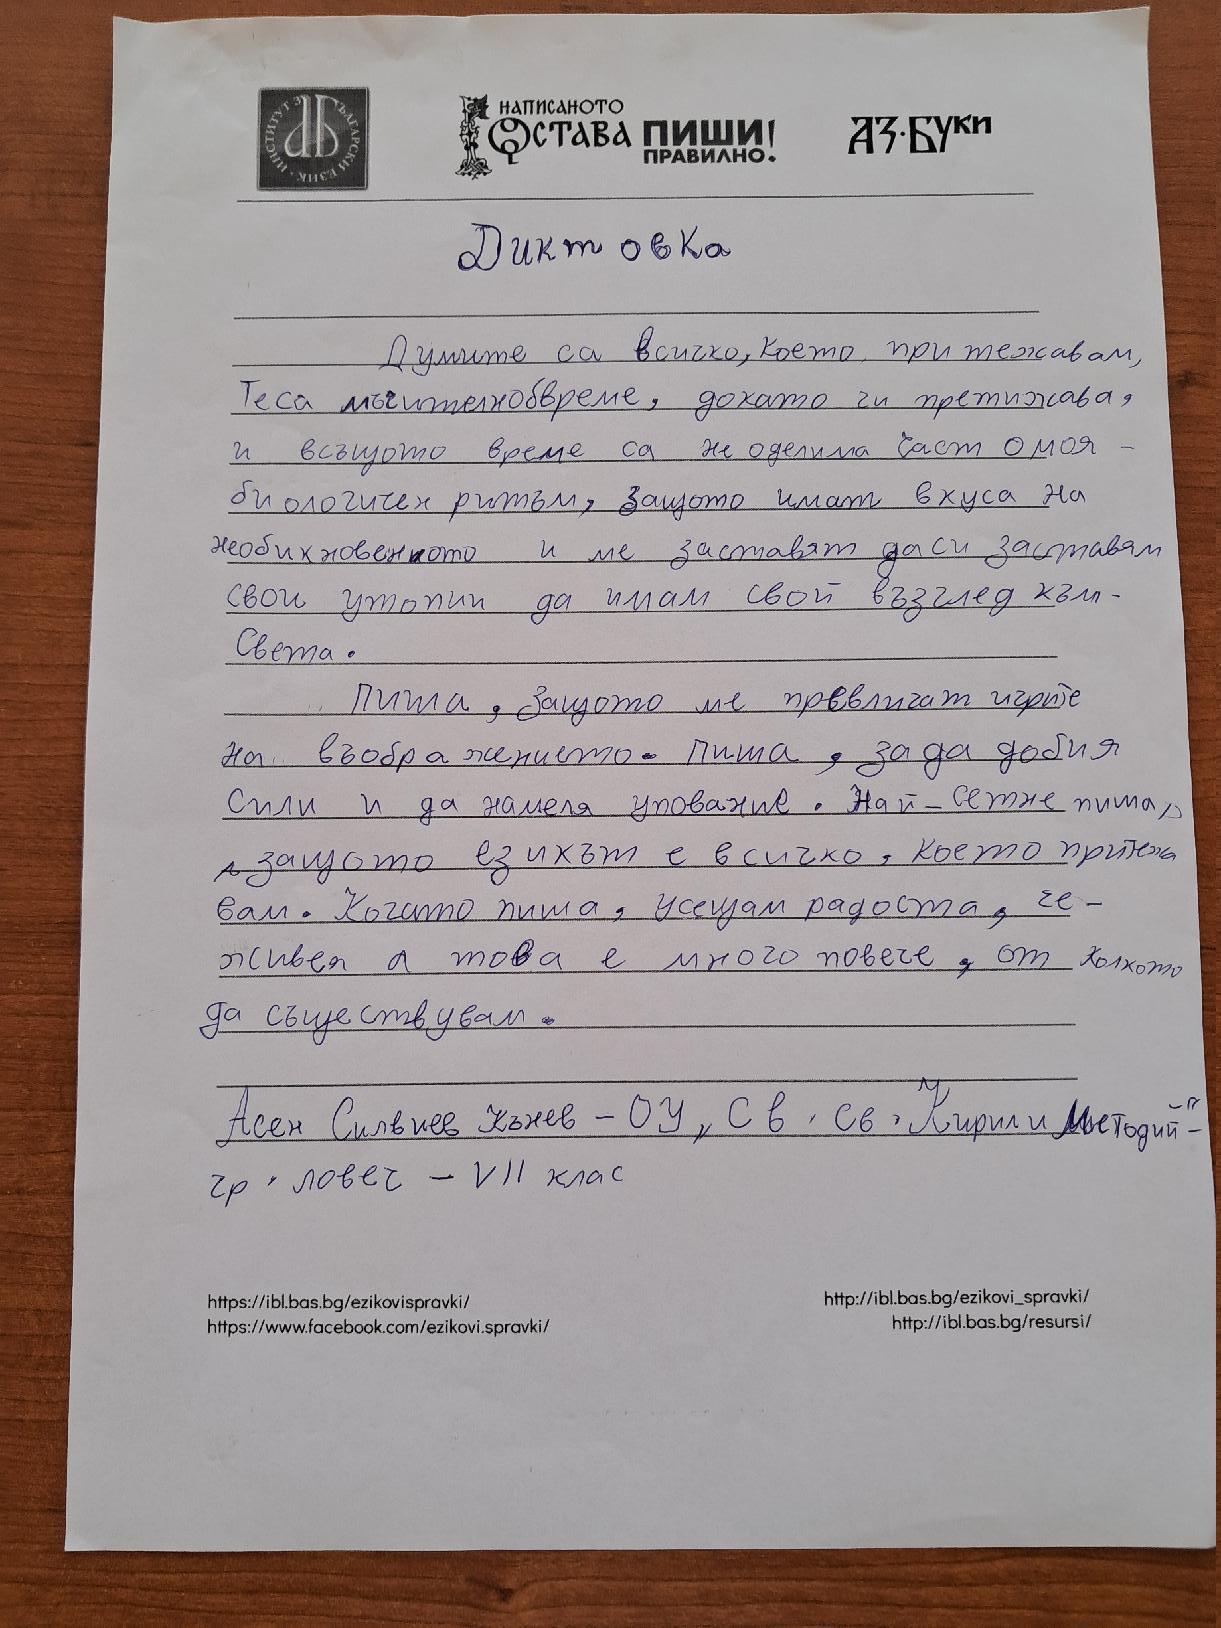 ИНСТИТУТ ЗА БЪЛГАРСКИ ЕЗИК
НАПИСАНОТО
ОСТАВА ПИШИ!
ПРАВИЛНО.
АЗ·БУКИ
Диктовка
Думите са всичко, което притежавам,
Теса мъчителнобвреме, докато ги претижава,
и всъщото време са не оделима част о моя -
биологичен ритъм, защото имат вкуса на
необикновенното и ме заставят даси заставям
свои утопии да имам свой възглед към -
света.
Пиша, защото ме превличат игрите
на въображението. Пиша, за да добия
сили и да намеля упование. Най-сетне пиша,
защото езикът е всичко, което притежа
вам. Когато пиша, усещам радоста, че -
живея а това е много повече, от колкото
да съществувам.
Асен Силвиев Кънев - ОУ „Св. Св. Кирил и Методий“ -
гр. Ловеч - VII клас
https://ibl.bas.bg/ezikovispravki/
http://ibl.bas.bg/ezikovi_spravki/
https://www.facebook.com/ezikovi.spravki/
http://ibl.bas.bg/resursi/